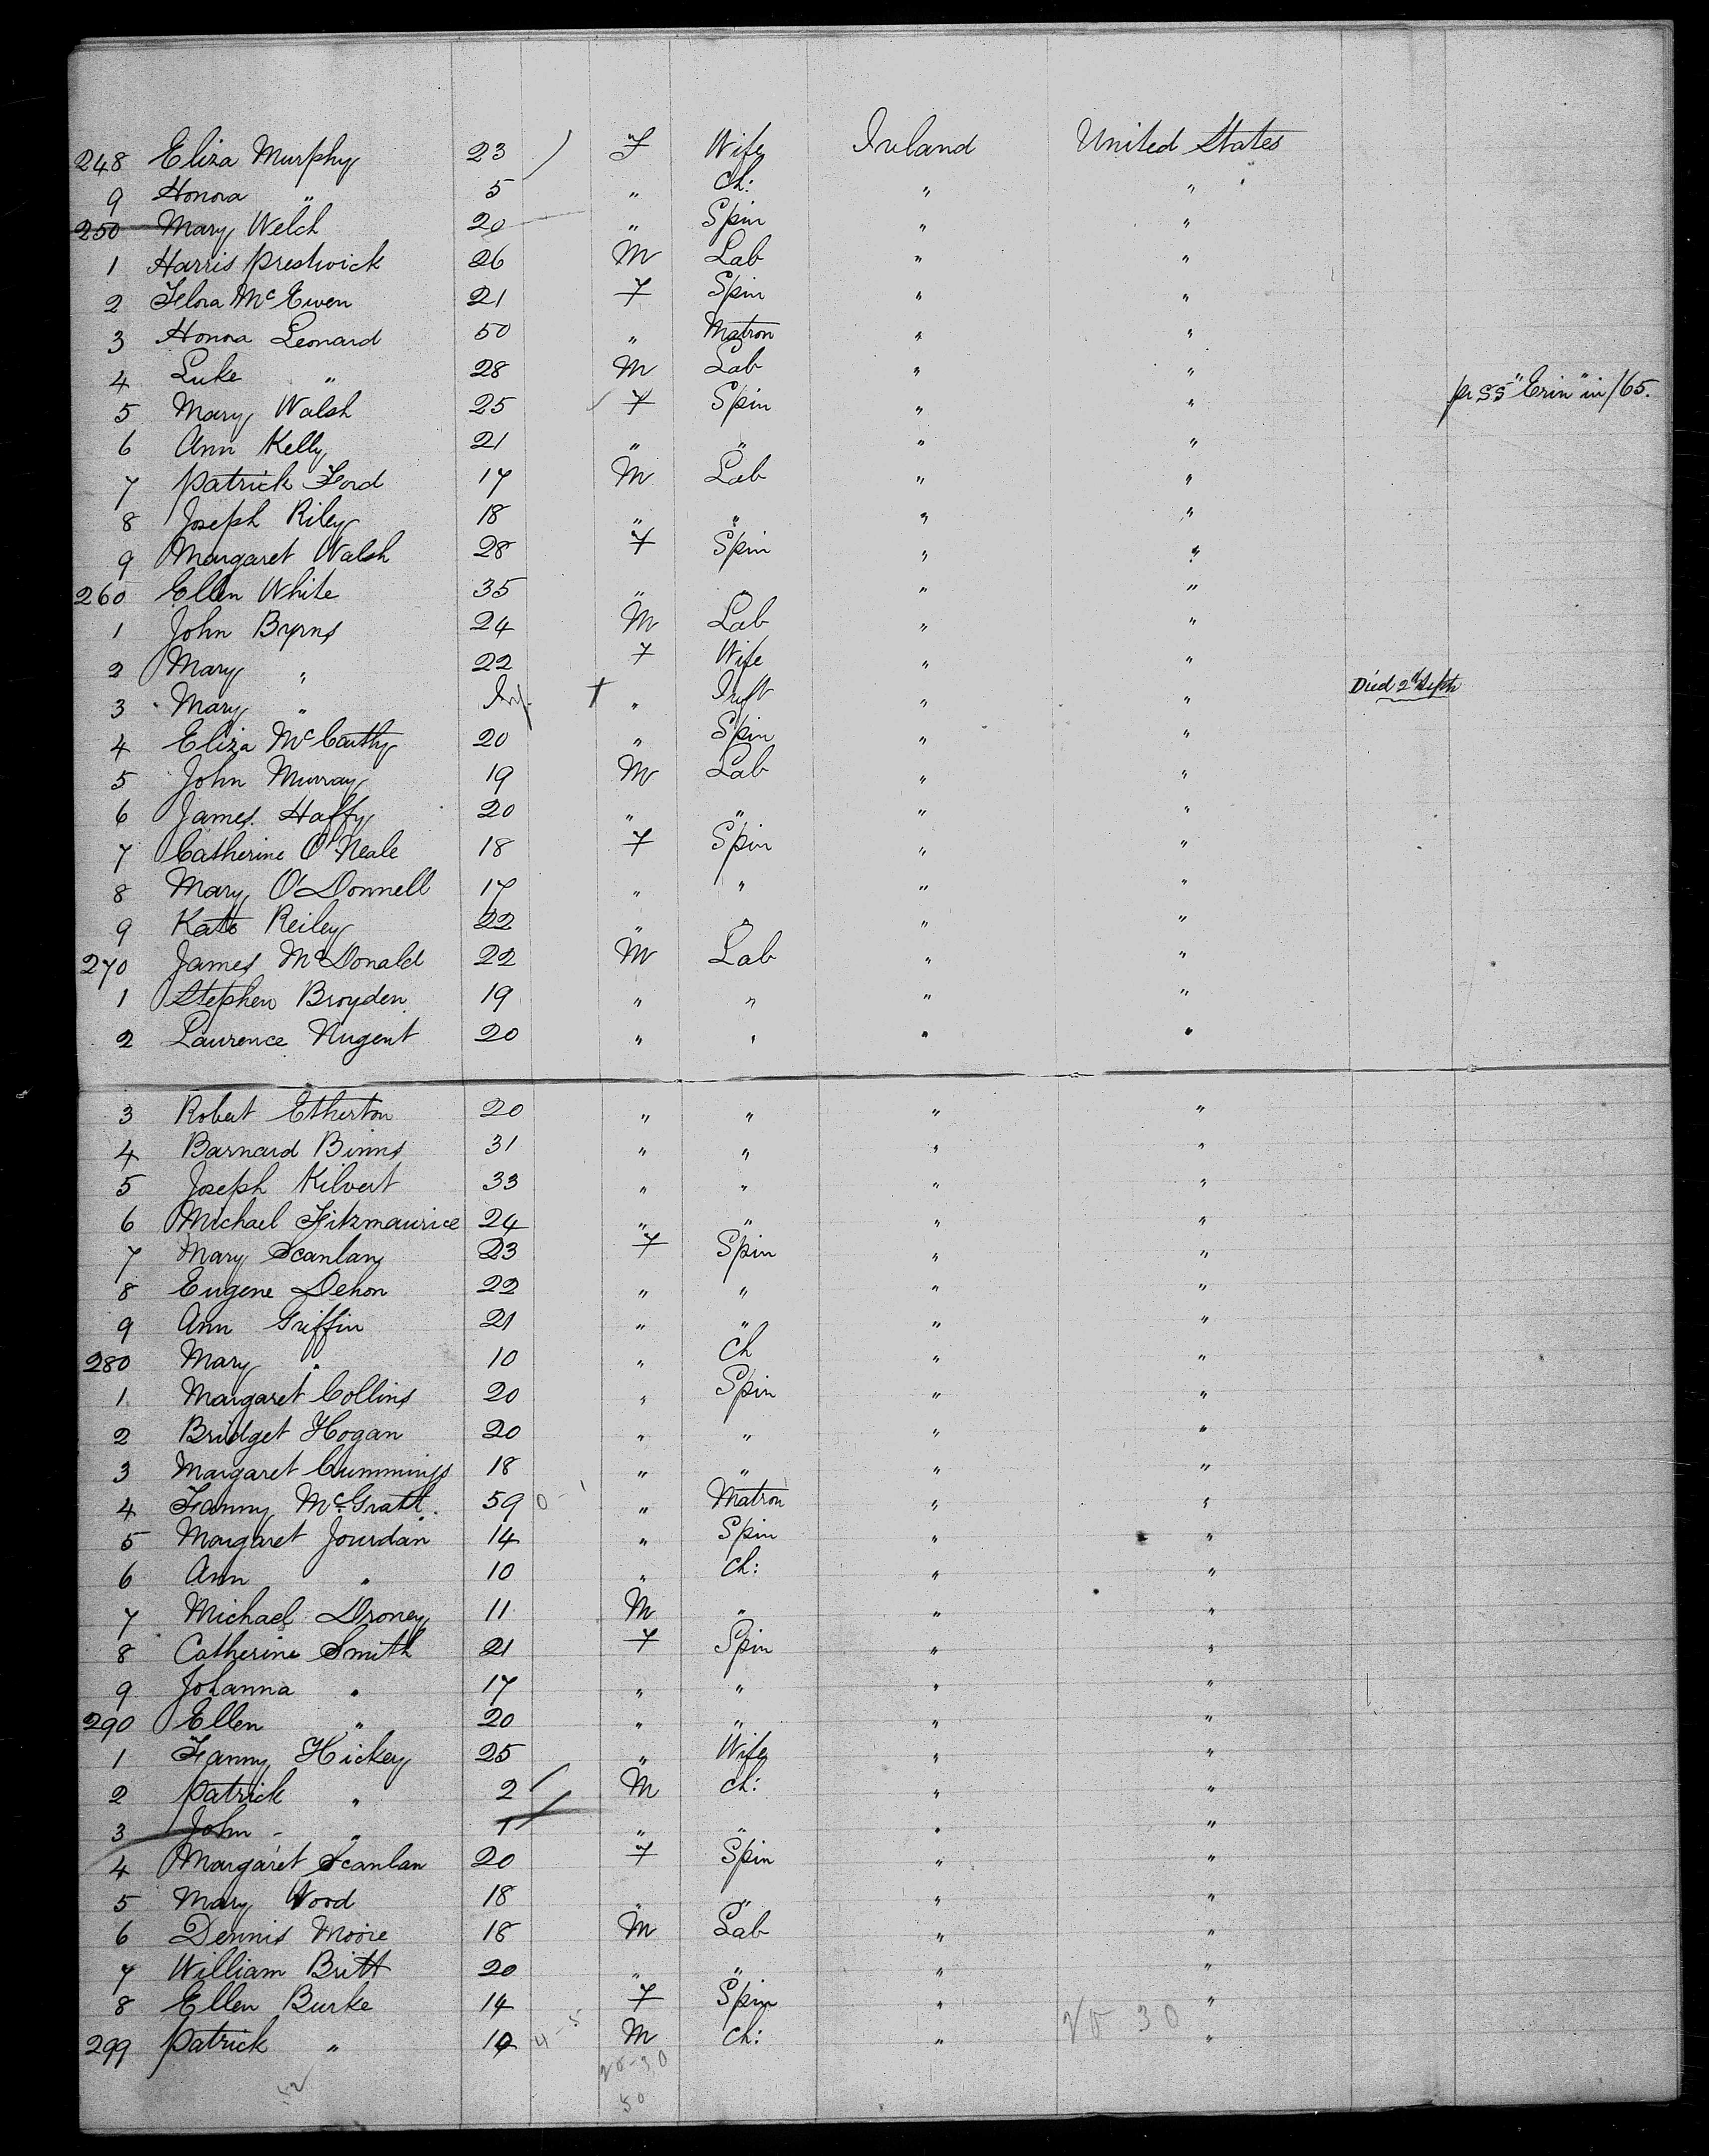 248 Eliza Murphy 23 F Wife Ireland United States
9 Honora " 5 " Ch: " "
250 Mary Welch 20 " Spin " "
1 Harris Prestwick 26 M Lab " "
2 Flora McEwen 21 F Spin " "
3 Honora Leonard 50 " Matron " "
4 Luke " 28 M Lab " "
5 Mary Walsh 25 F Spin " " pr SS "Erin" in /65.
6 Ann Kelly 21 " " " "
7 Patrick Ford 17 M Lab " "
8 Joseph Riley 18 " " " "
9 Margaret Walsh 28 F Spin " "
260 Ellen White 35 " " " "
1 John Byrns 24 M Lab " "
2 Mary " 22 F Wife " "
3 Mary " Inf. † " Inft " " Died 2d Septr
4 Eliza McCarthy 20 " Spin " "
5 John Murray 19 M Lab " "
6 James Haffy 20 " " " "
7 Catherine O'Neale 18 F Spin " "
8 Mary O'Donnell 17 " " " "
9 Kate Reiley 22 " " " "
270 James McDonald 22 M Lab " "
1 Stephen Broyden 19 " " " "
2 Laurence Nugent 20 " " " "
3 Robert Etherton 20 " " " "
4 Barnard Binns 31 " " " "
5 Joseph Kilvert 33 " " " "
6 Michael Fitzmaurice 24 " " " "
7 Mary Scanlan 23 F Spin " "
8 Eugene Dehon 22 " " " "
9 Ann Griffin 21 " " " "
280 Mary " 10 " Ch " "
1 Margaret Collins 20 " Spin " "
2 Bridget Hogan 20 " " " "
3 Margaret Cummings 18 " " " "
4 Fanny McGratt. 59 " Matron " "
5 Margaret Jourdan 14 " Spin " "
6 Ann " 10 " Ch: " "
7 Michael Droney 11 M " " "
8 Catherine Smith 21 F Spin " "
9 Johanna " 17 " " " "
290 Ellen " 20 " " " "
1 Fanny Hickey 25 " Wife " "
2 Patrick " 2 M Ch: " "
3 John " 1 " " " "
4 Margaret Scanlan 20 F Spin " "
5 Mary Wood 18 " " " "
6 Dennis Moore 18 M Lab " "
7 William Britt 20 " " " "
8 Ellen Burke 14 F Spin " "
299 Patrick " M Ch: " "
50